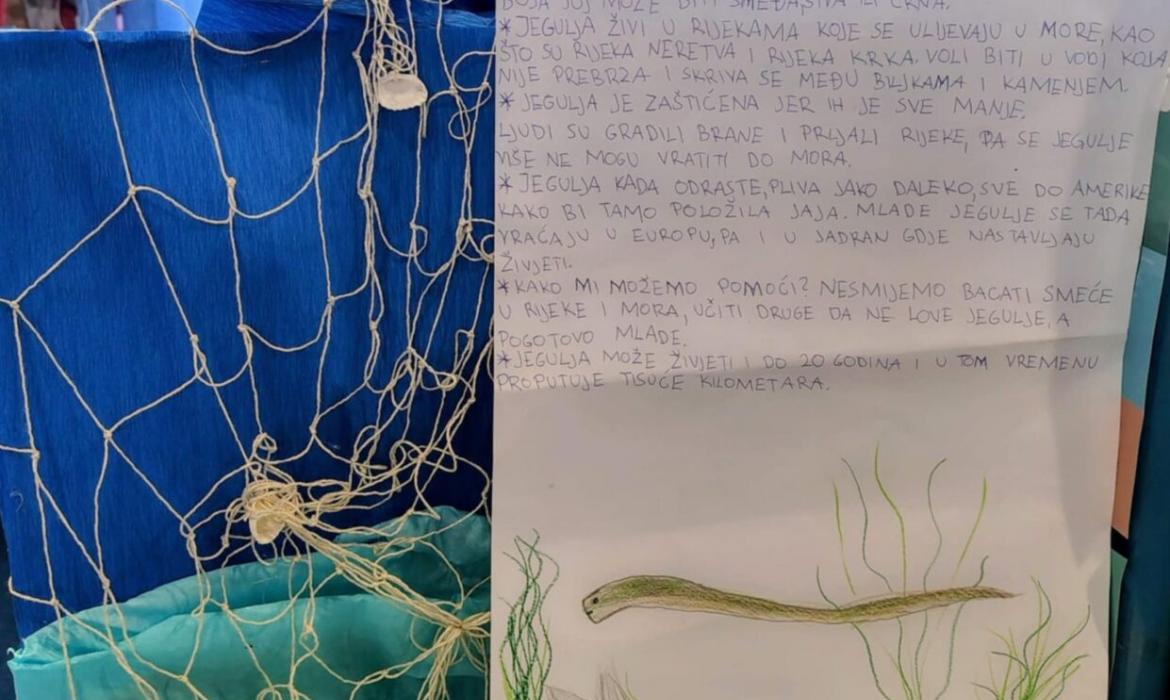 BOJA JOJ MOŽE BITI SMEĐA, SIVA ILI CRNA.
* JEGULJA ŽIVI U RIJEKAMA KOJE SE ULIJEVAJU U MORE, KAO
ŠTO SU RIJEKA NERETVA I RIJEKA KRKA. VOLI BITI U VODI KOJA
NIJE PREBRZA I SKRIVA SE MEĐU BILJKAMA I KAMENJEM.
* JEGULJA JE ZAŠTIĆENA JER IH JE SVE MANJE.
LJUDI SU GRADILI BRANE I PRLJALI RIJEKE, PA SE JEGULJE
VIŠE NE MOGU VRATITI DO MORA.
* JEGULJA KADA ODRASTE, PLIVA JAKO DALEKO, SVE DO AMERIKE
KAKO BI TAMO POLOŽILA JAJA. MLADE JEGULJE SE TADA
VRAĆAJU U EUROPU, PA I U JADRAN GDJE NASTAVLJAJU
ŽIVJETI.
* KAKO MI MOŽEMO POMOĆI? NESMIJEMO BACATI SMEĆE
U RIJEKE I MORA, UČITI DRUGE DA NE LOVE JEGULJE, A
POGOTOVO MLADE.
* JEGULJA MOŽE ŽIVJETI I DO 20 GODINA I U TOM VREMENU
PROPUTUJE TISUĆE KILOMETARA.